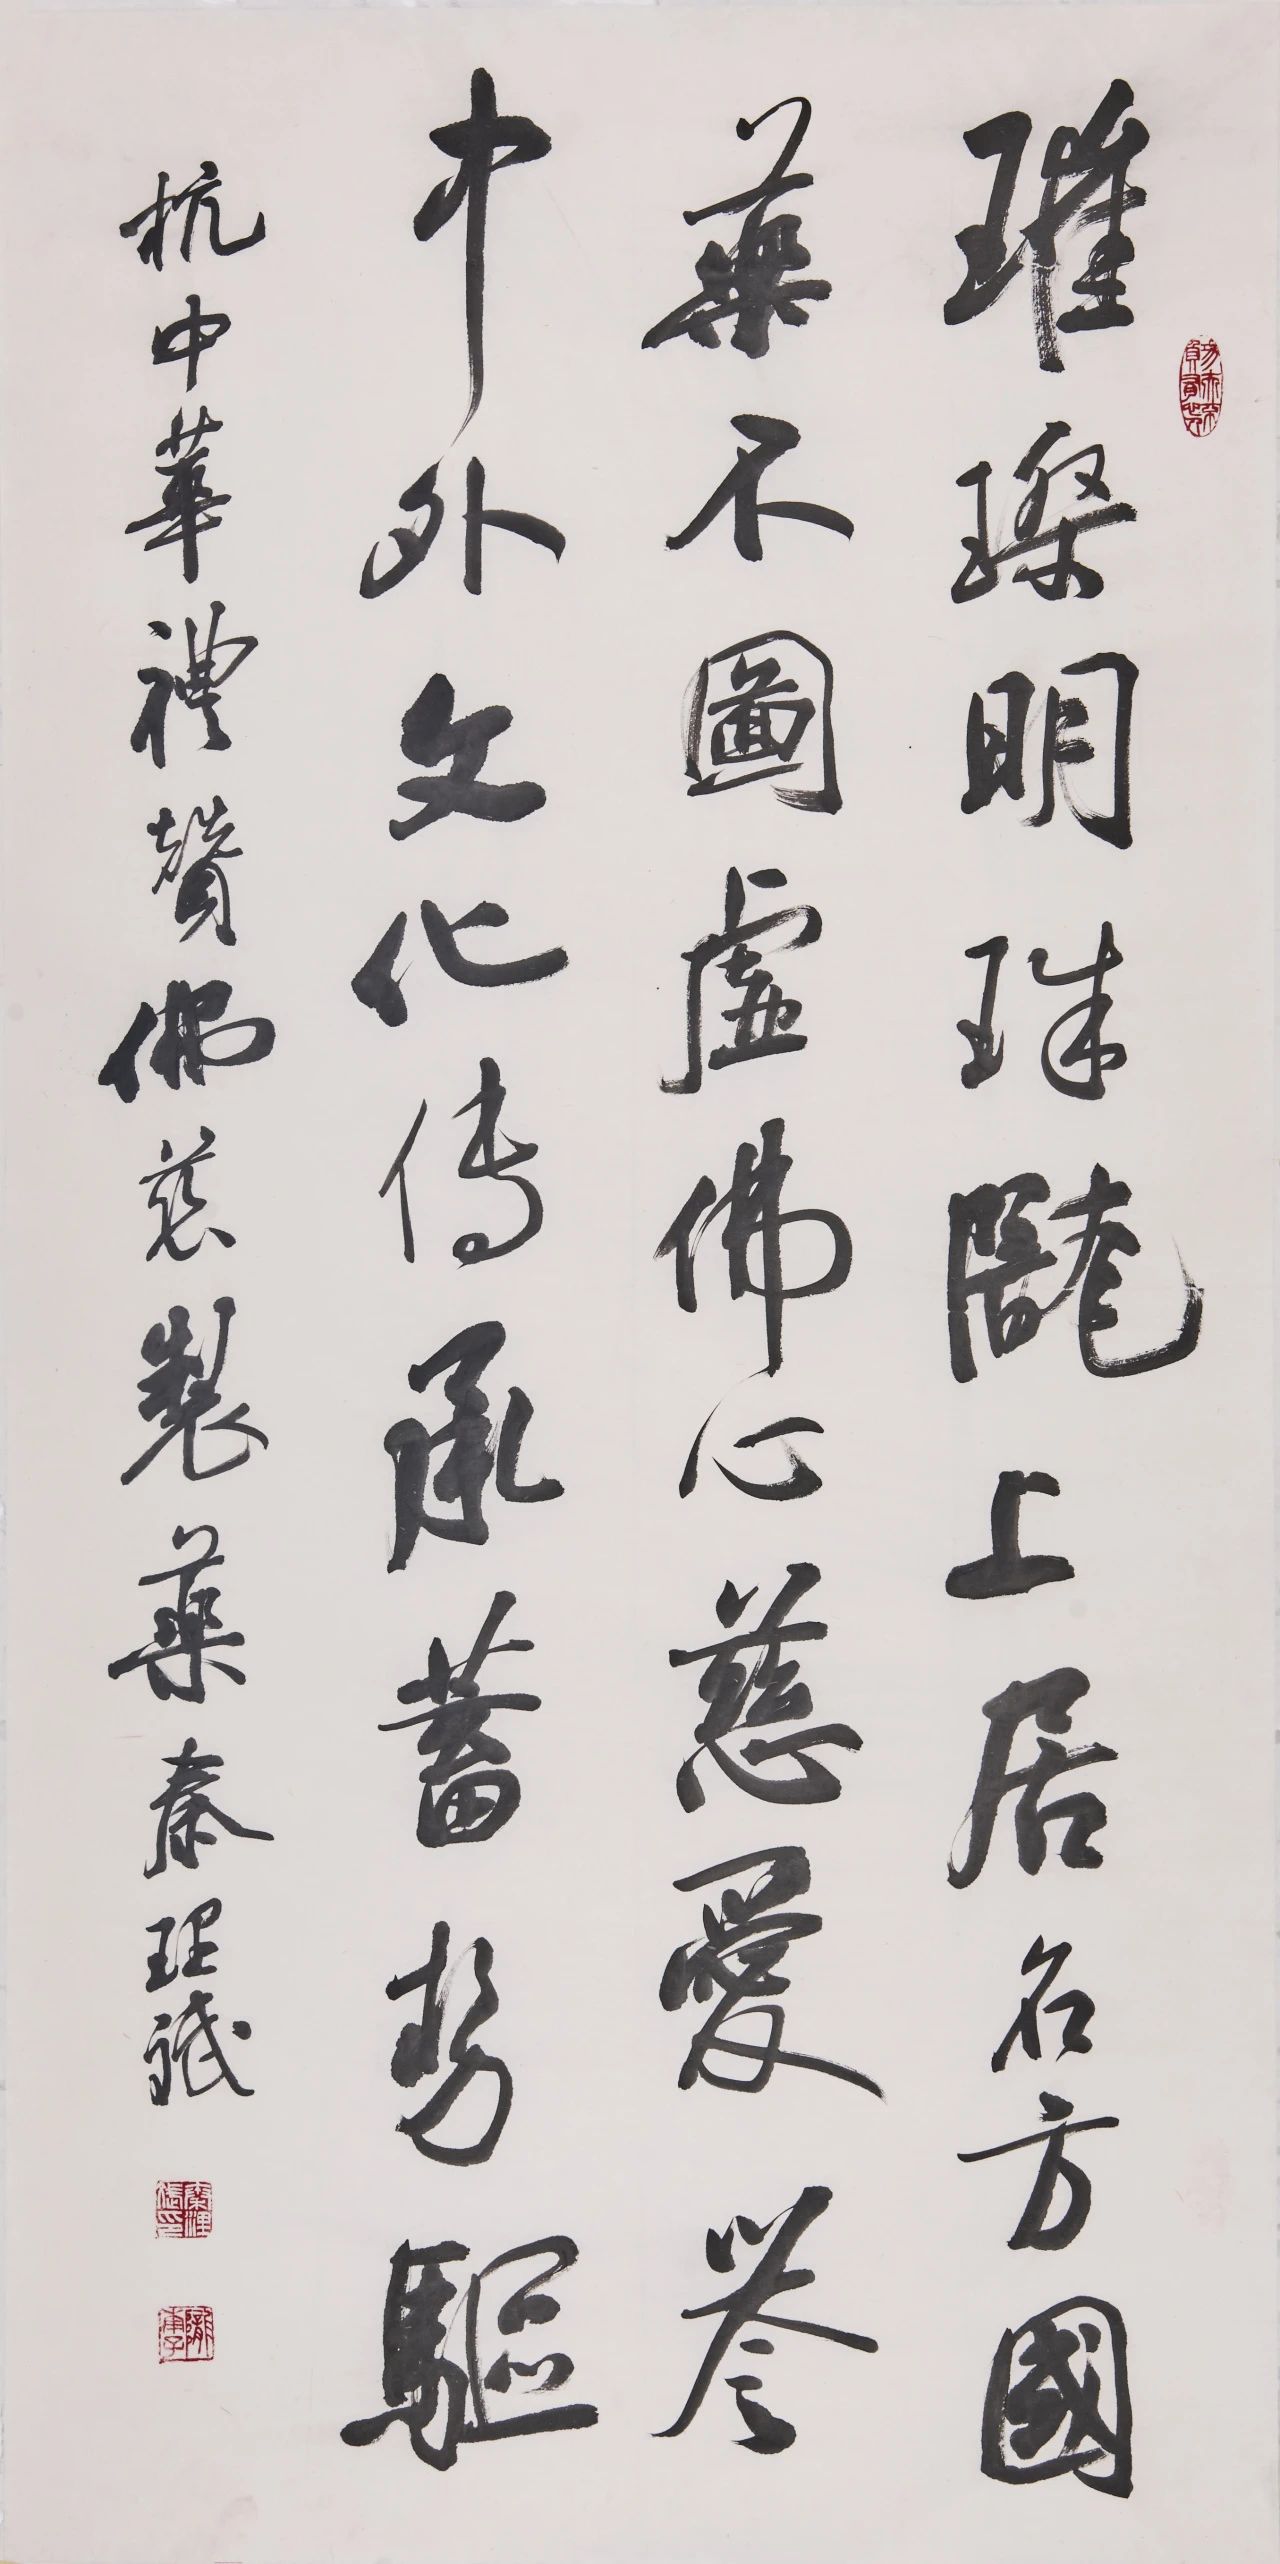 璀璨明珠隴上居名方國
藥不圖虛佛心慈愛誉
中外文化傳承蓄勢驅
杭中華禮贊佛慈製藥秦理